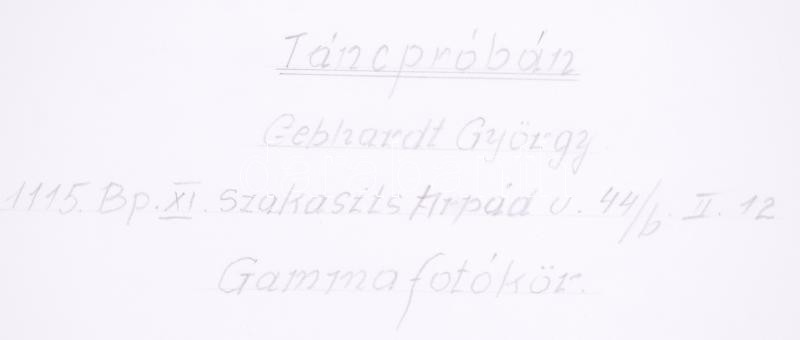 Táncpróbán
Gebhardt György
1115. Bp. XI. Szakasits Árpád u. 44/b. II. 12
Gamma fotókör.